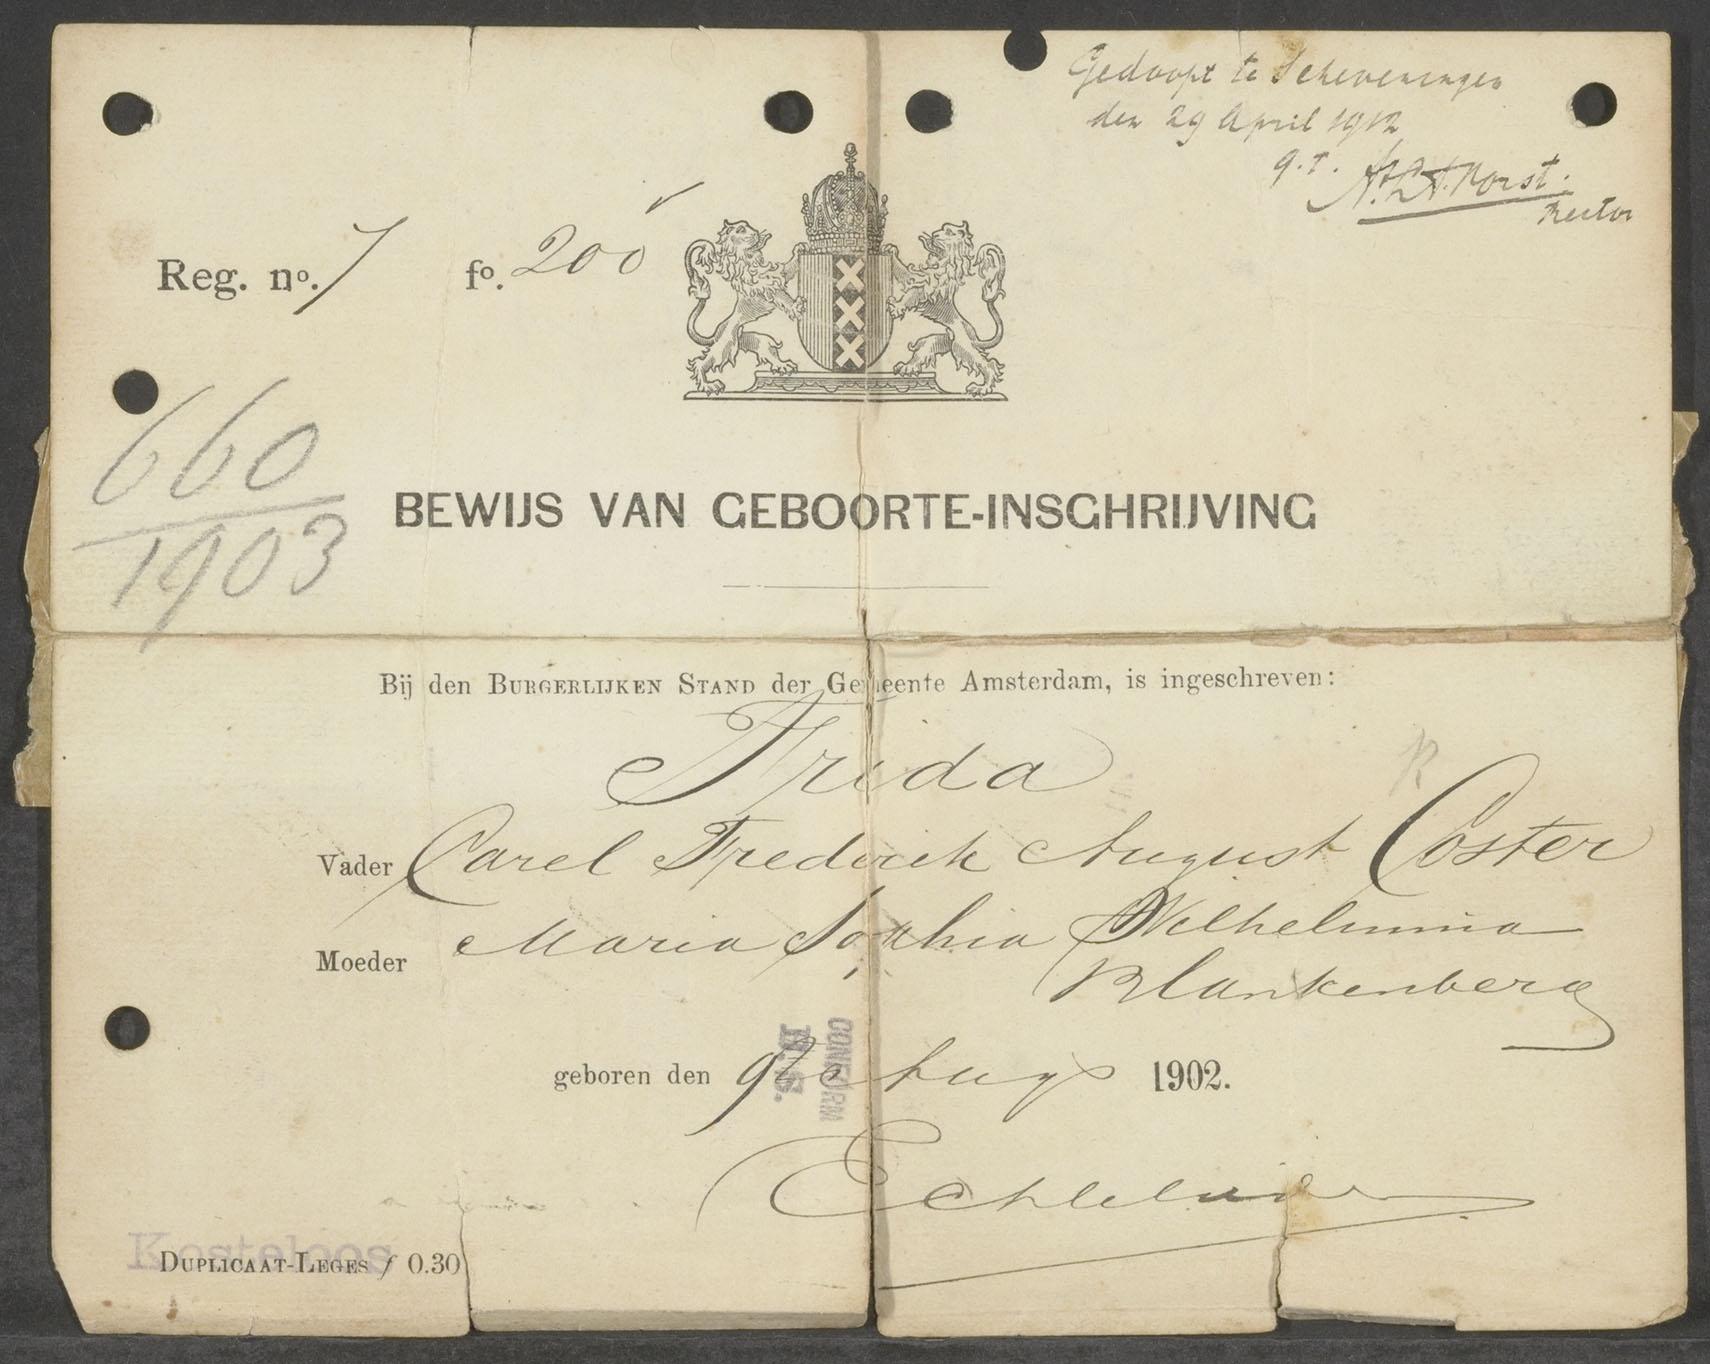 Gedoopt te Scheveningen
den 29 April 1912
q.t. A.L.A. Vorst.
Rector
Reg. no. 7 fo. 200
660
1903
BEWIJS VAN GEBOORTE-INSCHRIJVING
Bij den BURGERLIJKEN STAND der Gemeente Amsterdam, is ingeschreven:
Frida
Vader Carel Frederik August Coster
Moeder Maria Sophia Wilhelmina
Blankenberg
geboren den 9 Aug 1902.
CONFORM
B.S.
Kosteloos
DUPLICAAT-LEGES f 0.30